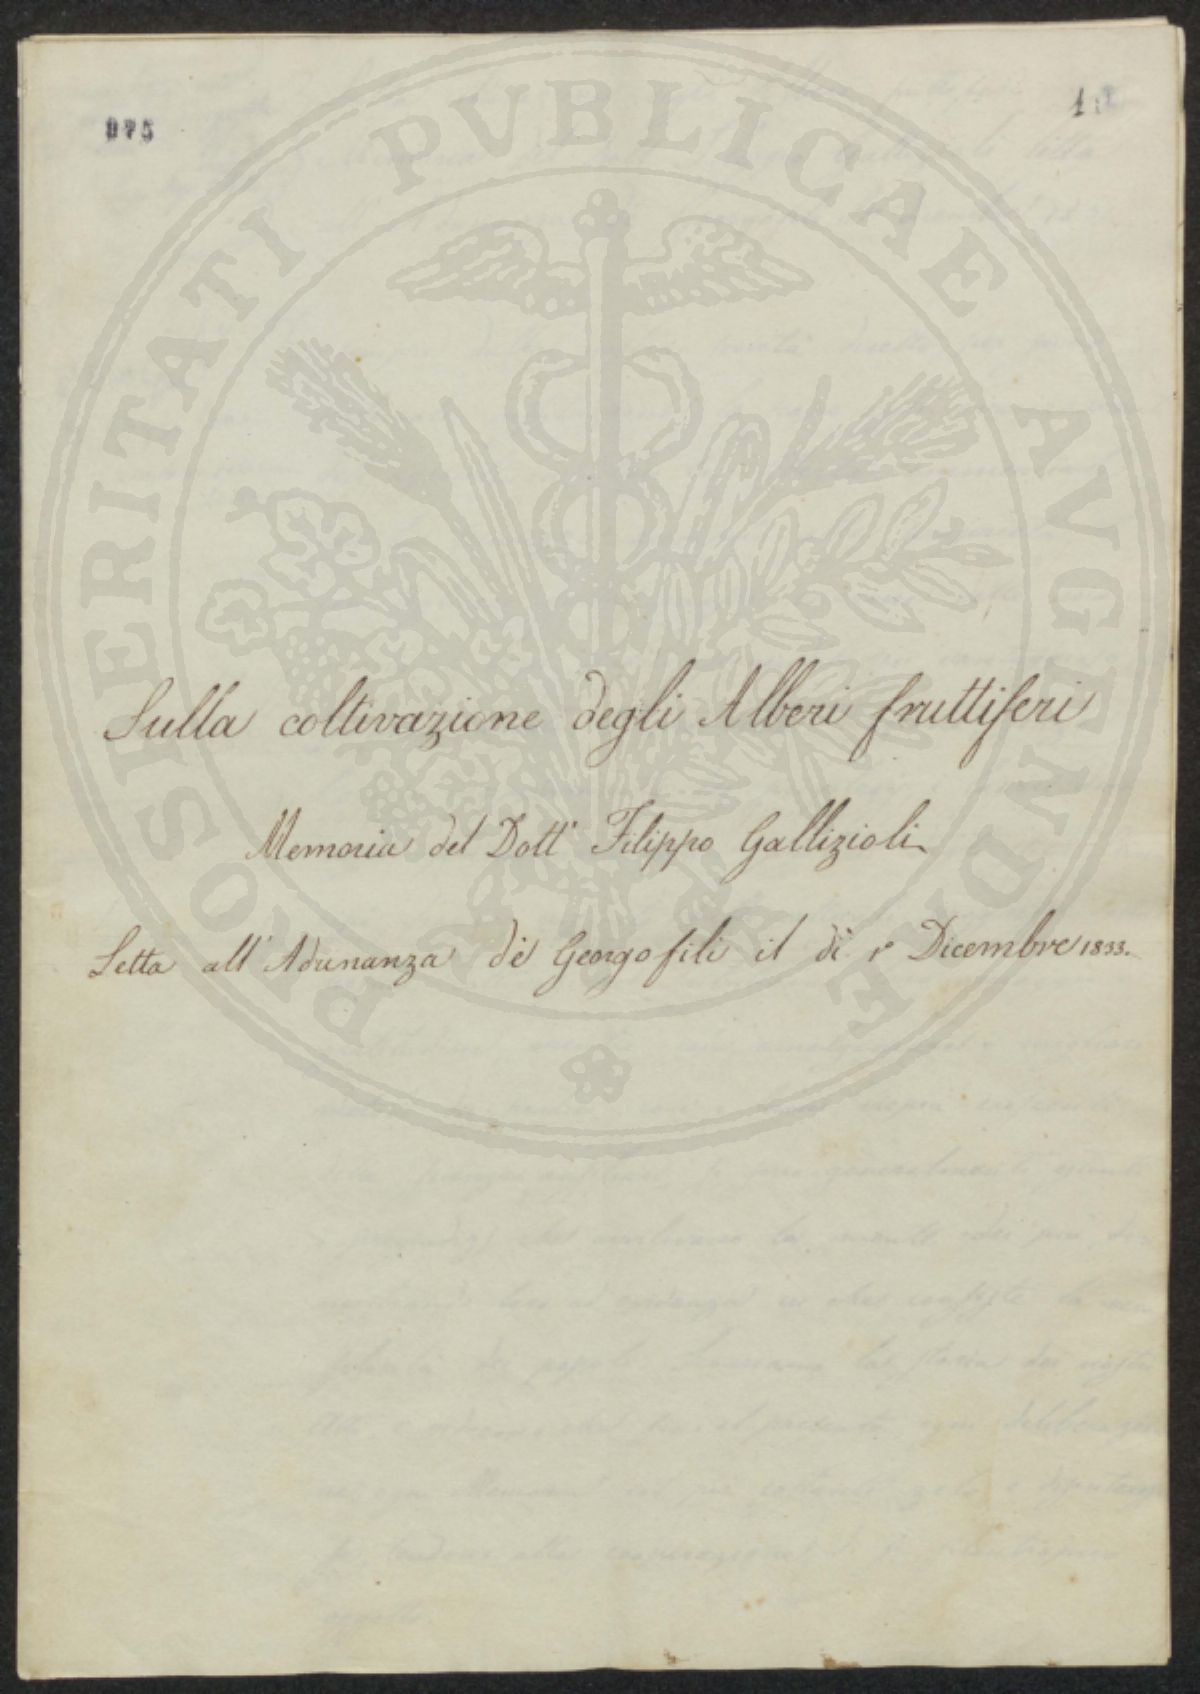 975
PROSPERITATI PVBLICAE AVGENDAE
Sulla coltivazione degli Alberi fruttiferi
Memoria del Dott. Filippo Gallizioli
Letta all'Adunanza de' Georgofili il dì 1° Dicembre 1833.